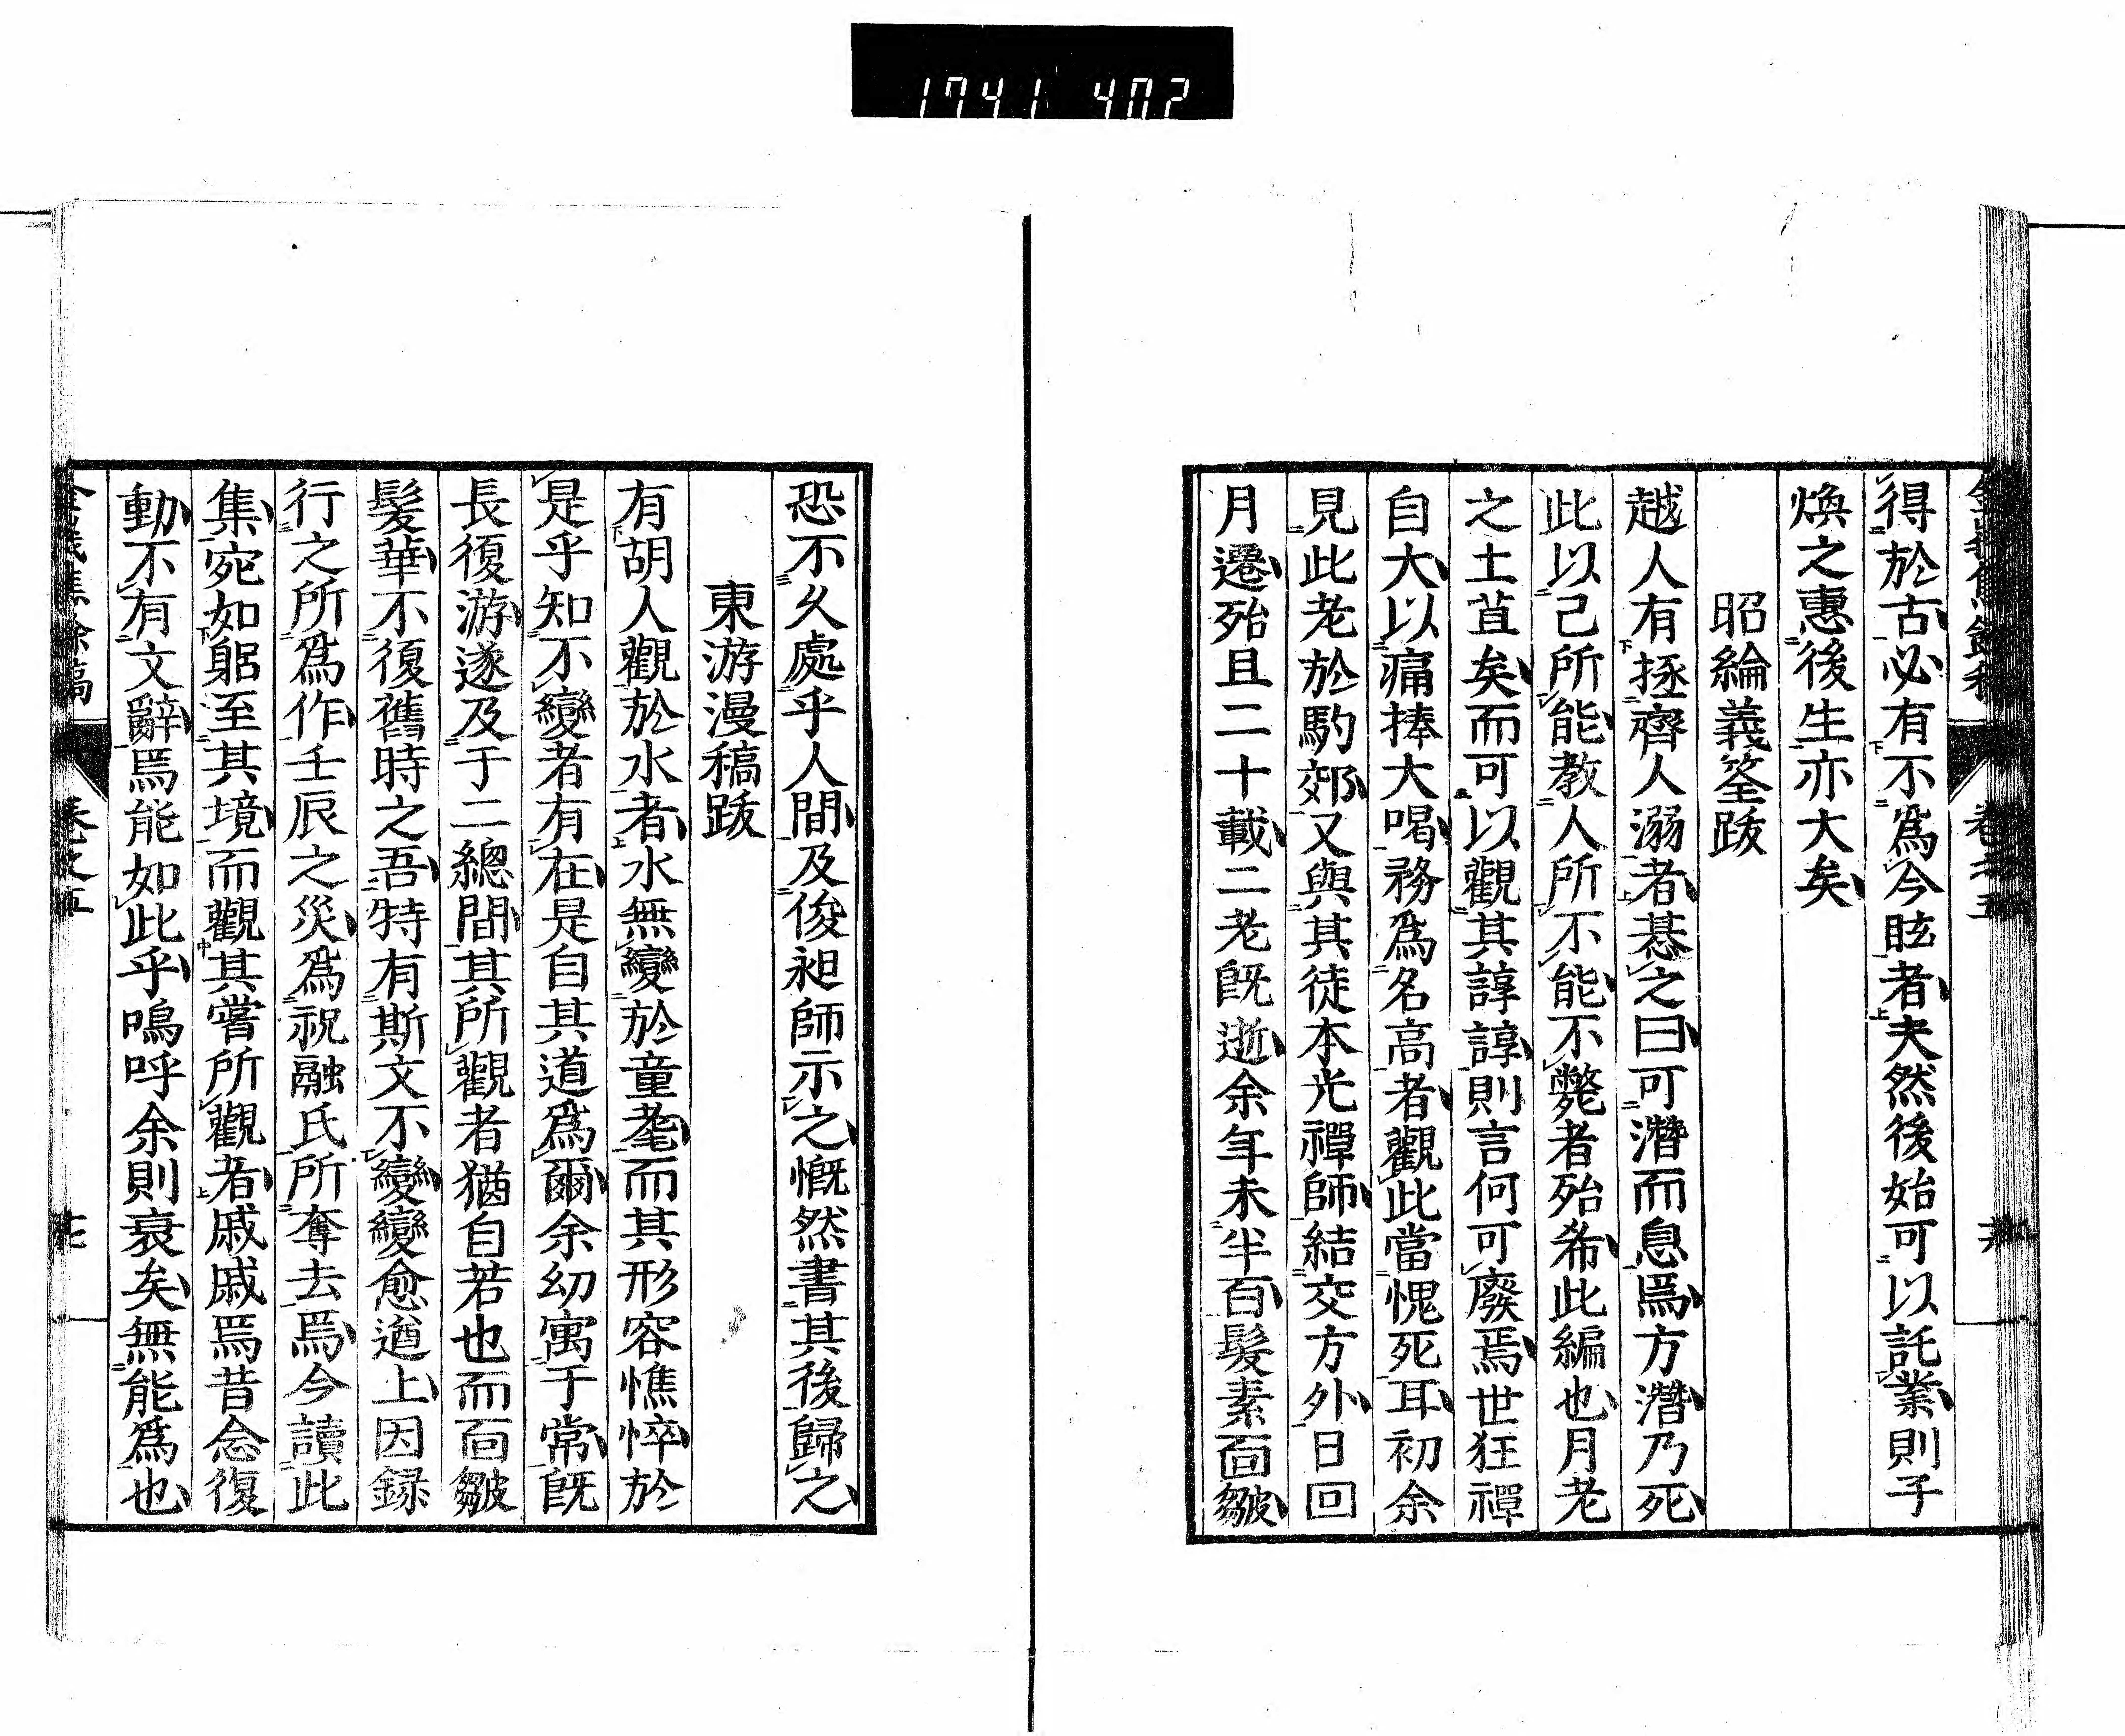 1741 402
得於古必有不爲今眩者夫然後始可以託業則子
煥之惠後生亦大矣
昭綸義筌跋
越人有拯齊人溺者惎之曰可潛而息焉方潛乃死
此以己所能教人所不能不斃者殆希此編也月老
之土苴矣而可以觀其諄諄則言何可廢焉世狂禪
自大以痛捧大喝務爲名高者觀此當愧死耳初余
見此老於駒郊又與其徒本光禪師結交方外日回
月遷殆且二十載二老旣逝余年未半百髮素面皺
恐不久處乎人間及俊昶師示之慨然書其後歸之
東游漫稿跋
有胡人觀於水者水無變於童耄而其形容憔悴於
是乎知不變者有在是自其道爲爾余幼寓于常旣
長復游遂及于二總間其所觀者猶自若也而面皺
髮華不復舊時之吾特有斯文不變變愈遒上因録
行之所爲作壬辰之災爲祝融氏所奪去焉今讀此
集宛如躬至其境而觀其嘗所觀者戚戚焉昔念復
動不有文辭焉能如此乎嗚呼余則衰矣無能爲也
卷之五